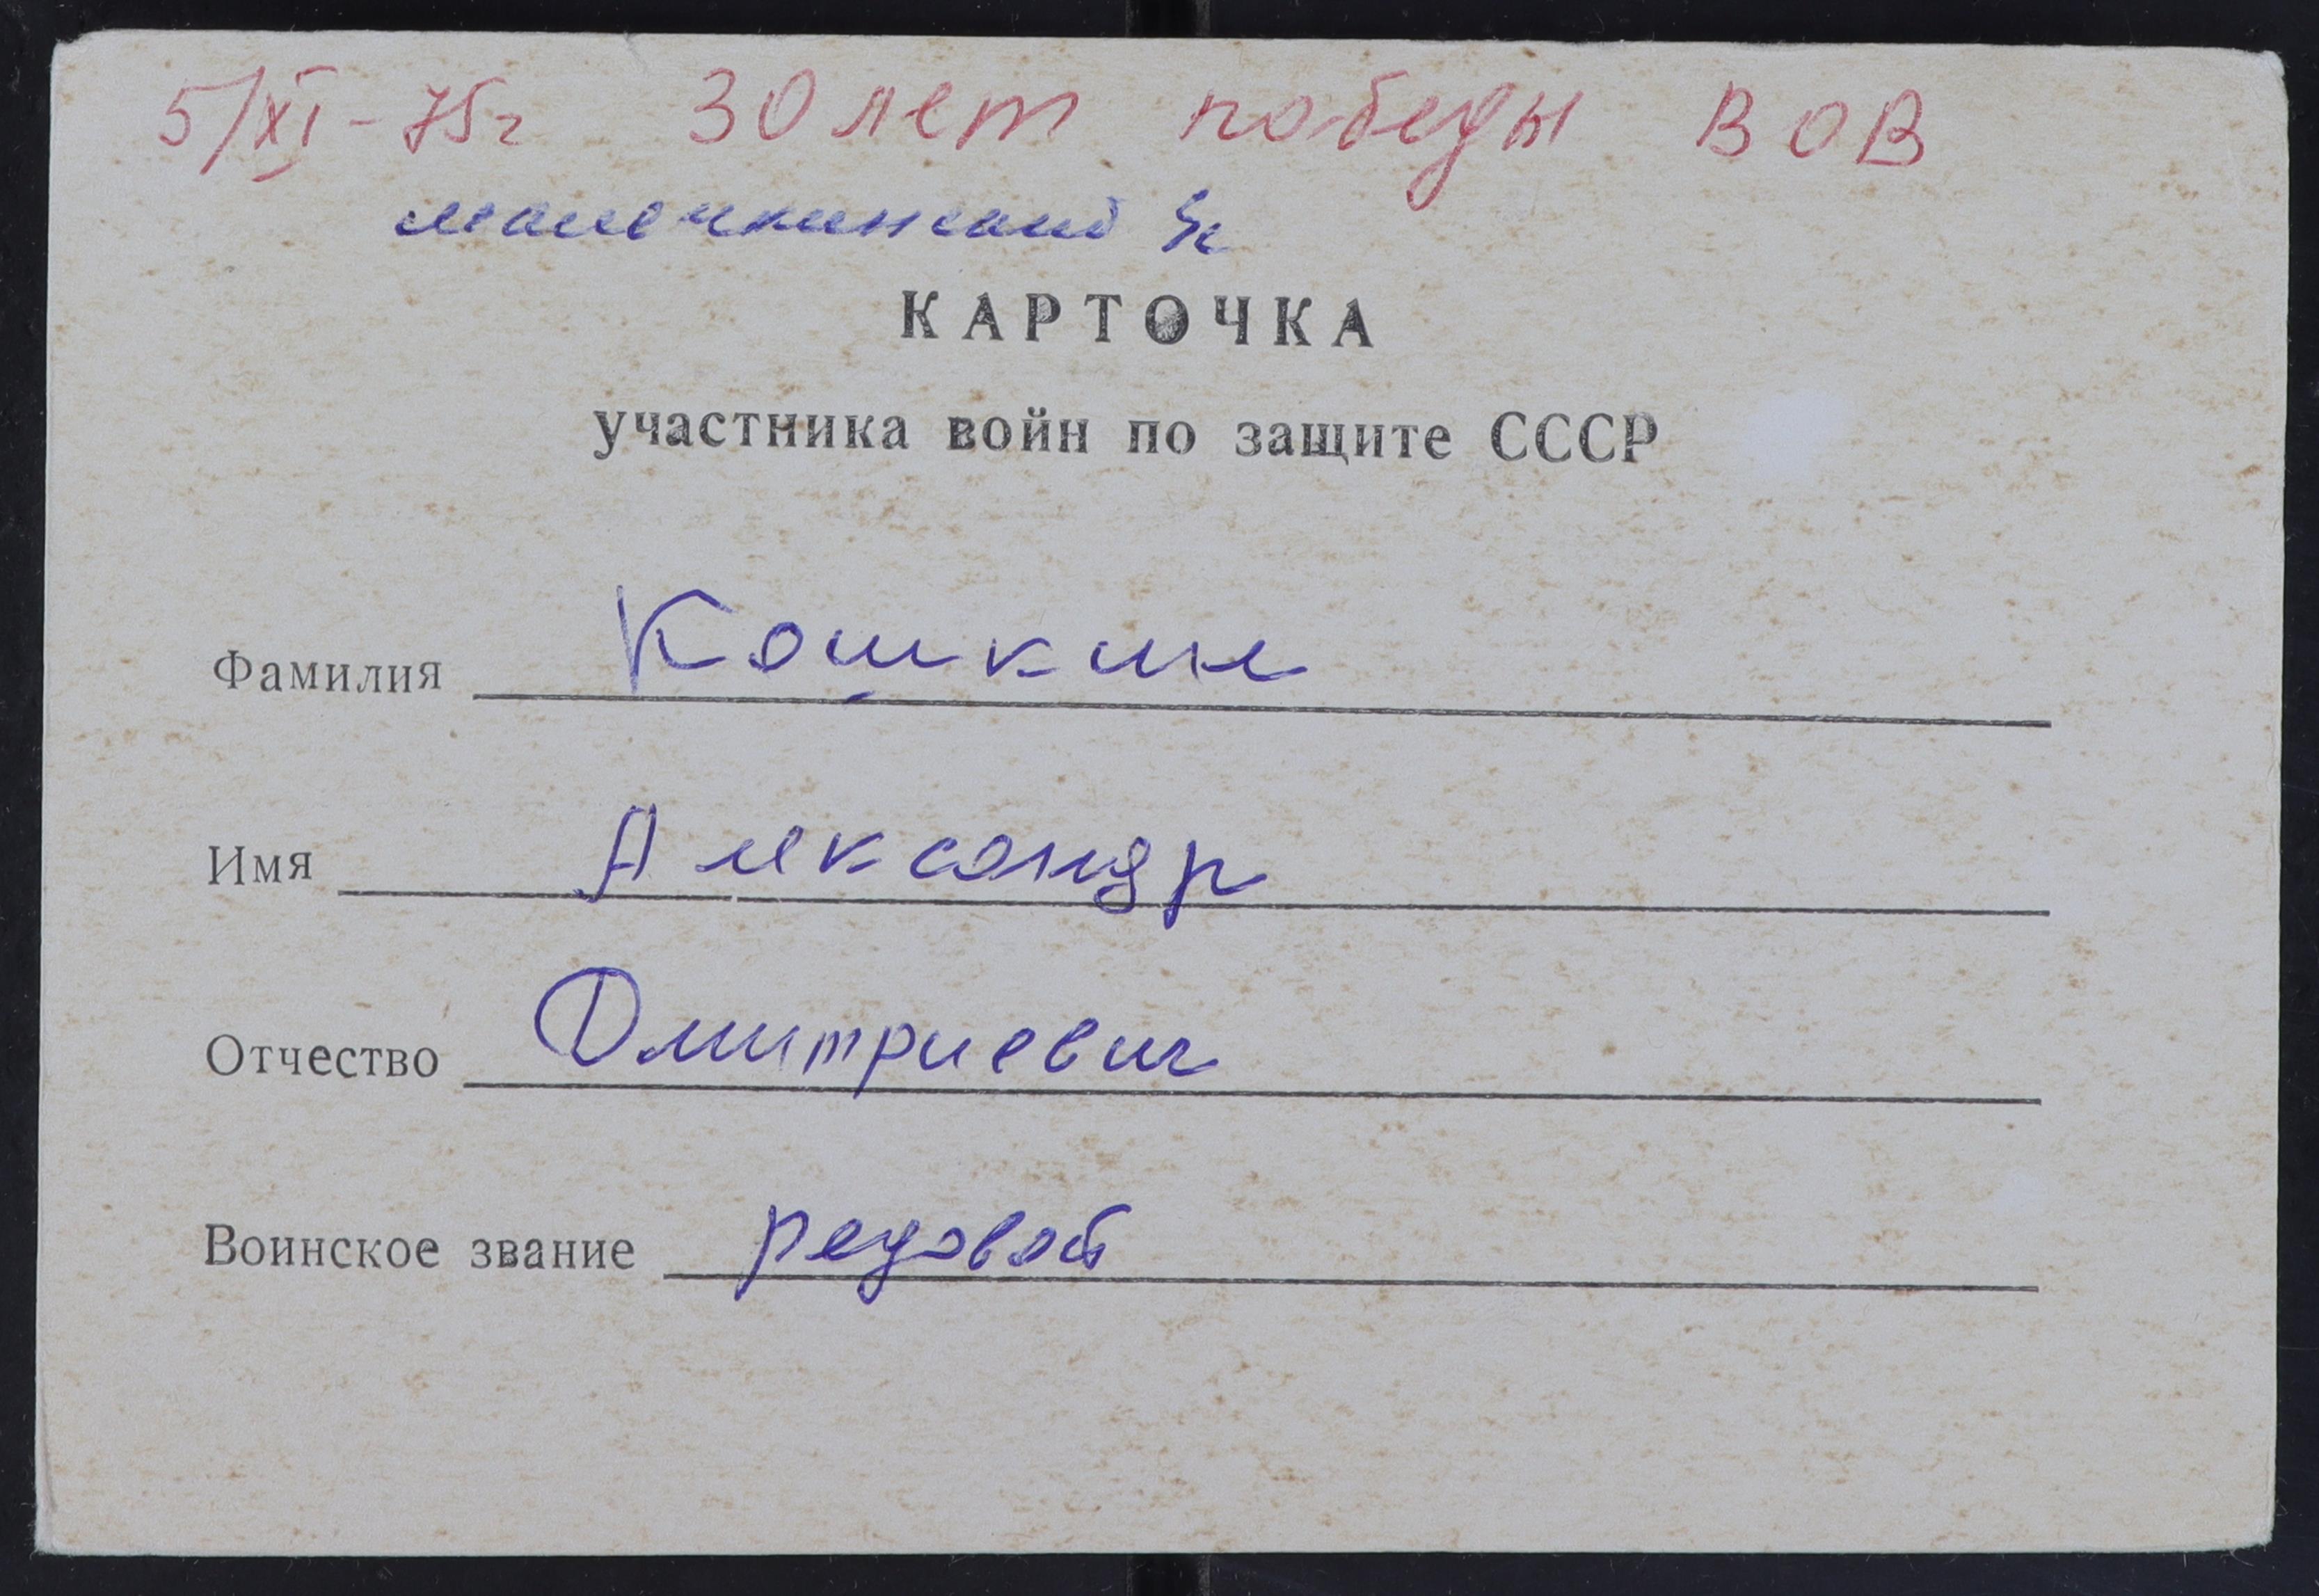 5/XI-75г 30 лет победы ВОВ
КАРТОЧКА
участника войн по защите СССР
Фамилия Кошкин
Имя Александр
Отчество Дмитриевич
Воинское звание редовой